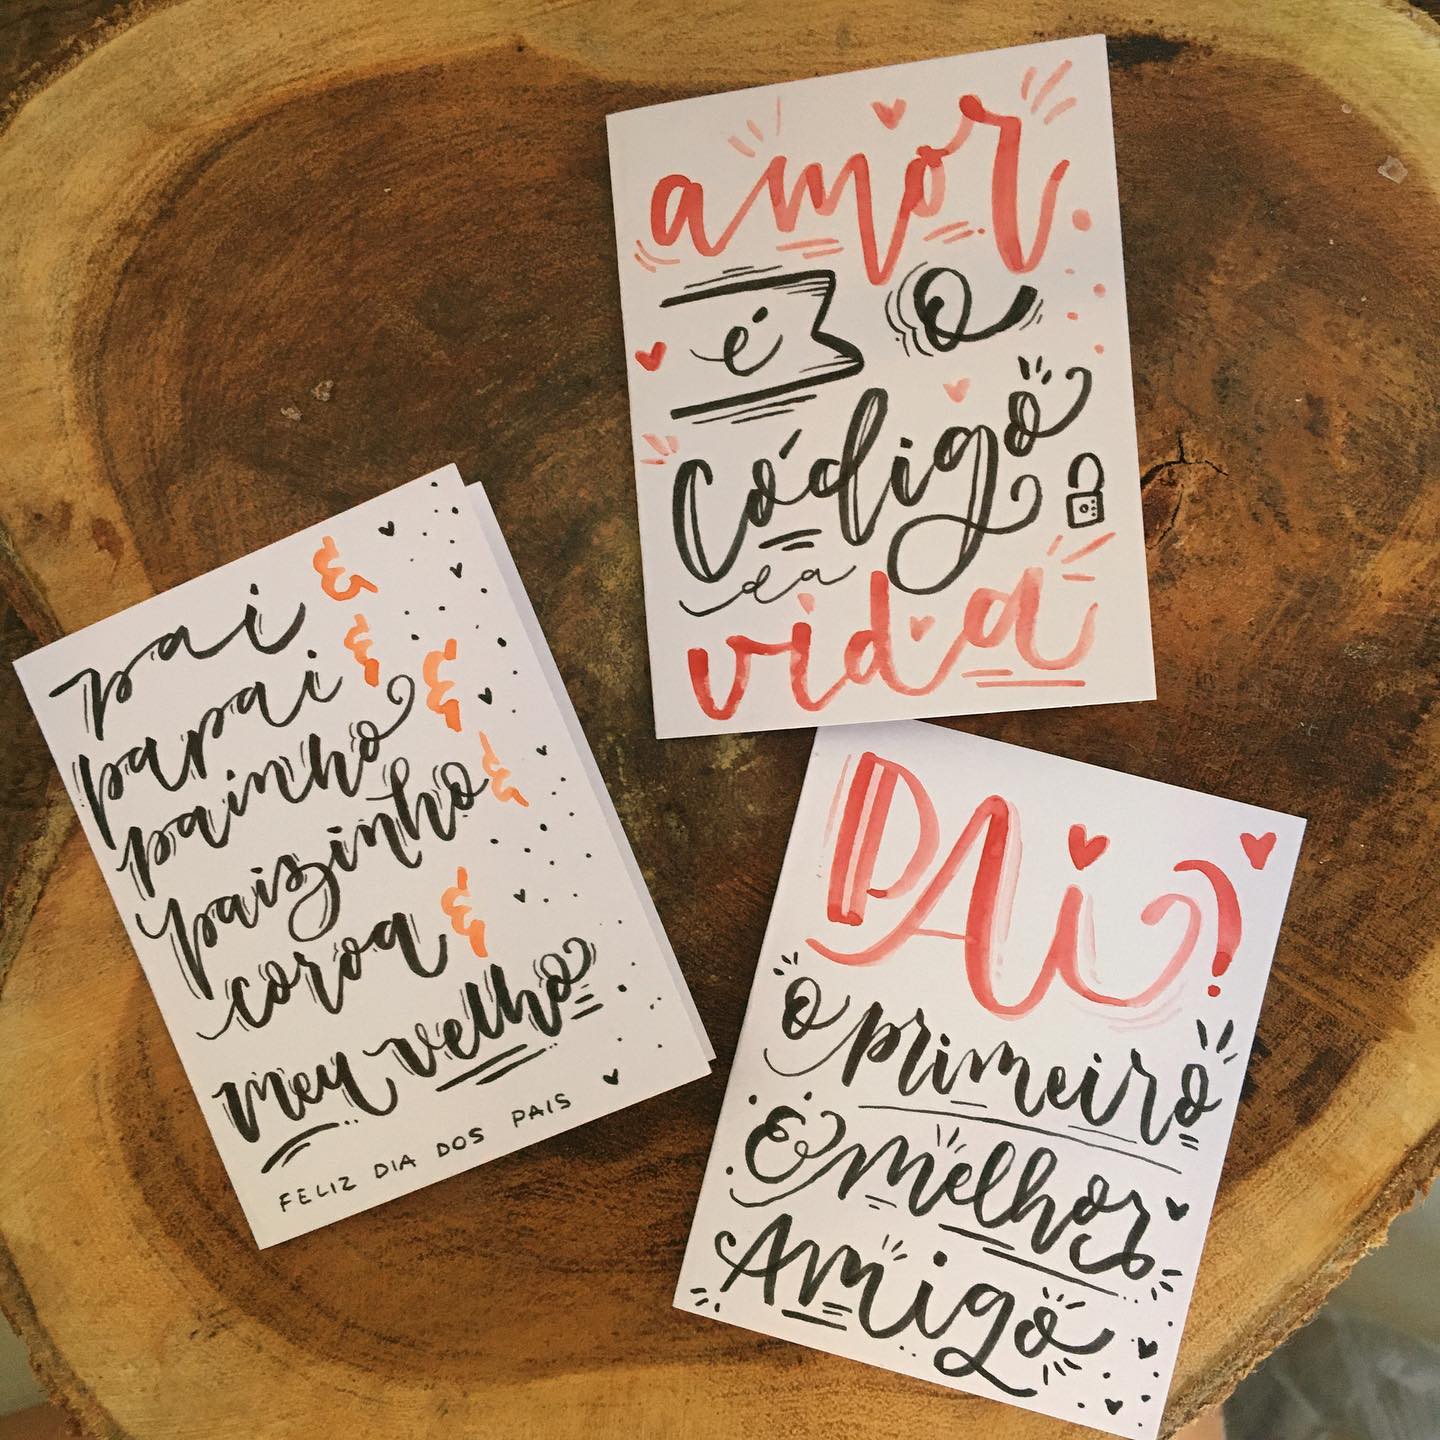 amor
é o
código
da
vida
pai
papai
painho
paizinho
coroa
meu velho
FELIZ DIA DOS PAIS
PAi
o primeiro
& melhor
Amigo